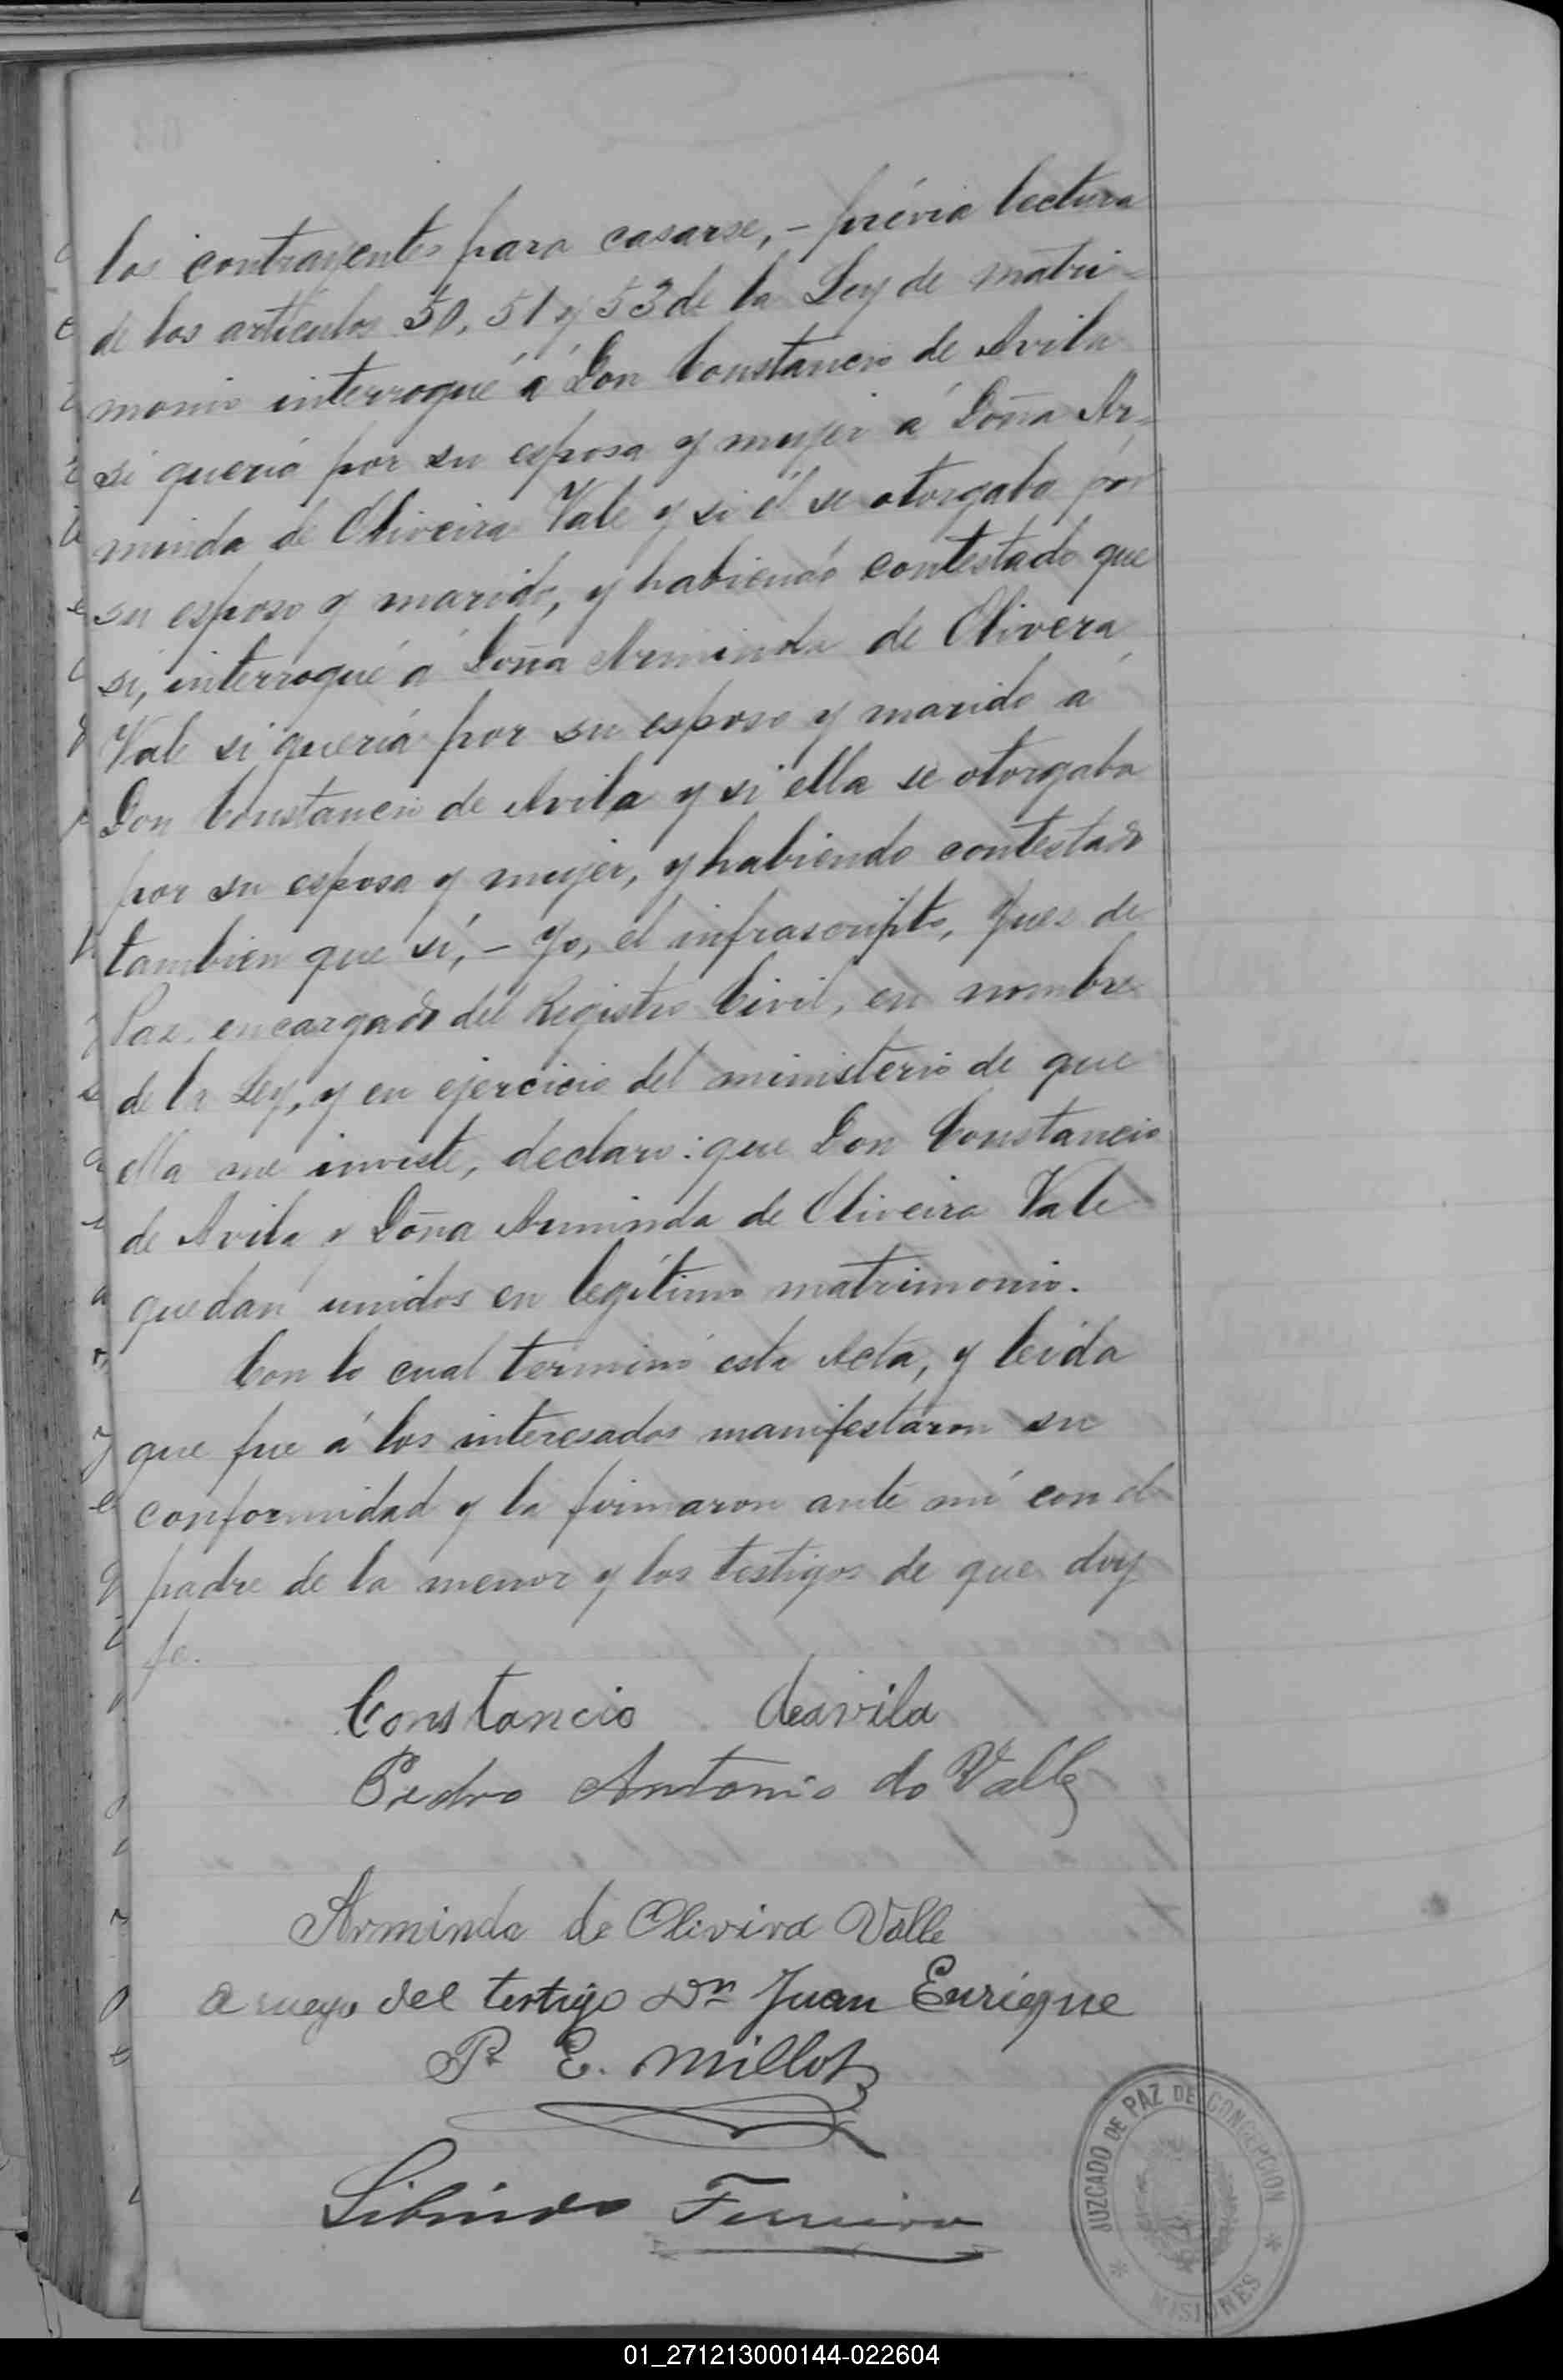 los contrayentes para casarse, - prévia lectura
de los artículos 50, 51 y 53 de la Ley de matri-
monio interrogué á Don Constancio de Avila
si queria por su esposa y mujer á Doña Ar-
minda de Oliveira Vale y si él se otorgaba por
su esposo y marido, y habiendo contestado que
si, interrogué á Doña Arminda de Olivera
Vale si quería por su esposo y marido á
Don Constancio de Avila y si ella se otorgaba
por su esposa y mujer, y habiendo contestado
tambien que sí, - Yo, el infrascripto, Juez de
Paz encargado del Registro Civil, en nombre
de la Ley, y en ejercicio del ministerio de que
ella me inviste, declaro: que Don Constancio
de Avila y Doña Arminda de Oliveira Vale
quedan unidos en legítimo matrimonio.
Con lo cual terminó esta Acta, y leida
que fue á los interesados manifestaron su
conformidad y la firmaron ante mí con el
padre de la menor y los testigos de que doy
fe.
Constancio deavila
Pedro Antonio do Valle
Arminda de Olivira Valle
a ruego del testigo Dn Juan Enrique
P. E. Millot
Libindo Ferreira
JUZCADO DE PAZ DE CONCEPCION
* MISIONES *
01_271213000144-022604